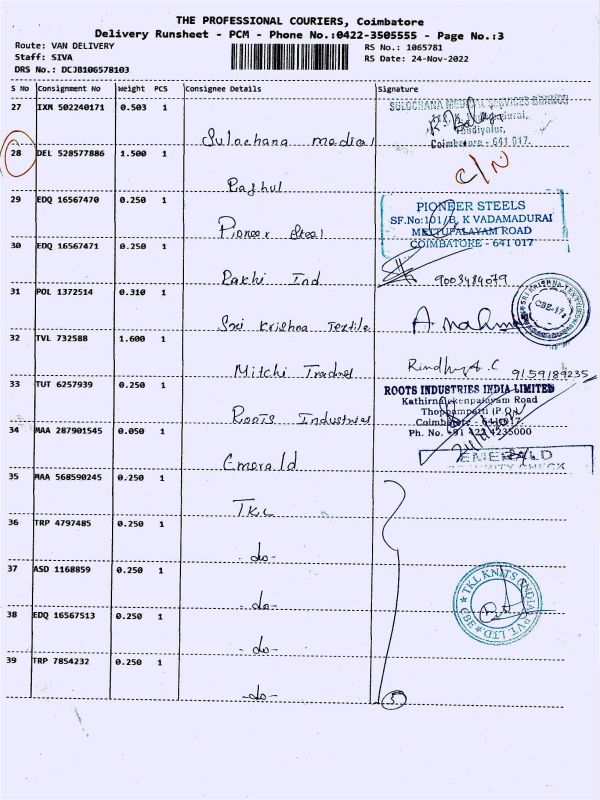 THE PROFESSIONAL COURIERS, Coimbatore
Delivery Runsheet - PCM - Phone No.:0422-3505555 - Page No.:3
Route: VAN DELIVERY
Staff: SIVA
DRS No.: DCJB106578103
RS No.: 1065781
RS Date: 24-Nov-2022
S No Consignment No Weight PCS Consignee Details Signature
27 IXM 502240171 0.503 1 Sulochana medical
SULOCHANA MEDICAL SERVICES
Coimbatore - 641 017.
28 DEL 528577886 1.500 1 Raghul C/N
29 EDQ 16567470 0.250 1 Pioneer Steel
PIONEER STEELS
SF.No:101/B, K VADAMADURAI
METTUPALAYAM ROAD
COIMBATORE - 641 017
30 EDQ 16567471 0.250 1 Rakhi Ind 9003484079
31 POL 1372514 0.310 1 Sri Krishna Textile
SRI KRISHNA
CBE-17
32 TVL 732588 1.600 1 Mitchi Traders 9159189235
33 TUT 6257939 0.250 1 Roots Industries
ROOTS INDUSTRIES INDIA LIMITED
Kathirnaickenpalayam Road
Thoppampatti (P.O)
Coimbatore - 641 017.
Ph. No. +91 422 4235000
34 MAA 287901545 0.050 1 Emerald
EMERALD
SECURITY CHECK
35 MAA 568590245 0.250 1 TKL
36 TRP 4797485 0.250 1 -do-
37 ASD 1168859 0.250 1 -do-
TKL KNITS (INDIA) PVT. LTD
38 EDQ 16567513 0.250 1 -do-
39 TRP 7854232 0.250 1 -do- 5